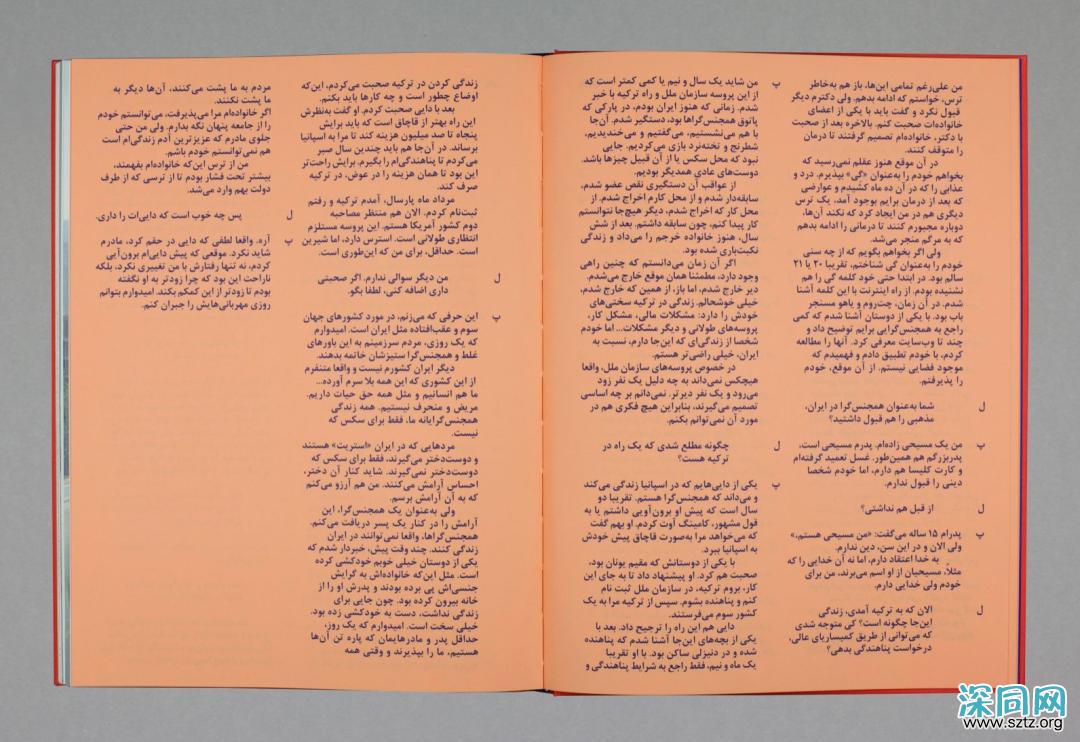 من علی‌رغم تمامی این‌ها، باز هم به‌خاطر
ترس، خواستم که ادامه بدهم. ولی دکترم دیگر
قبول نکرد و گفت باید با یکی از اعضای
خانواده‌ات صحبت کنم. بالاخره بعد از صحبت
با دکتر، خانواده‌ام تصمیم گرفتند تا درمان
را متوقف کنند.
در آن موقع هنوز عقلم نمی‌رسید که
بخواهم خودم را به‌عنوان «گی» بپذیرم. درد و
عذابی را که در آن ده ماه کشیدم و عوارضی
که بعد از درمان برایم بوجود آمد، یک ترس
دیگری هم در من ایجاد کرد که نکند آن‌ها،
دوباره مجبورم کنند تا درمانی را ادامه بدهم
که به مرگم منجر می‌شد.
ولی اگر بخواهم بگویم که از چه سنی
خودم را به‌عنوان گی شناختم، تقریبا ۲۰ یا ۲۱
سالم بود. در ابتدا حتی خود کلمه گی را هم
نشنیده بودم. از راه اینترنت با این کلمه آشنا
شدم. در آن زمان، چت‌روم و یاهو مسنجر
باب بود. با یکی از دوستان آشنا شدم که کمی
راجع به همجنس‌گرایی برایم توضیح داد و
چند تا وب‌سایت معرفی کرد. آنها را مطالعه
کردم، با خودم تطبیق دادم و فهمیدم که
موجود فضایی نیستم. از آن موقع، خودم
را پذیرفتم.
ل شما به‌عنوان همجنس‌گرا در ایران،
مذهبی را هم قبول داشتید؟
پ من یک مسیحی زاده‌ام. پدرم مسیحی است،
پدربزرگم هم همین‌طور. غسل تعمید گرفته‌ام
و کارت کلیسا هم دارم، اما خودم شخصا
دینی را قبول ندارم.
ل از قبل هم نداشتی؟
پ پدرام ۱۵ ساله می‌گفت: «من مسیحی هستم.»
ولی الان و در این سن، دین ندارم.
به خدا اعتقاد دارم، اما نه آن خدایی را که
مثلاً، مسیحیان از او اسم می‌برند، من برای
خودم ولی خدایی دارم.
ل الان که به ترکیه آمدی، زندگی
این‌جا چگونه است؟ کی متوجه شدی
که می‌توانی از طریق کمیساریای عالی،
درخواست پناهندگی بدهی؟
پ من شاید یک سال و نیم یا کمی کمتر است که
از این پروسه سازمان ملل و راه ترکیه با خبر
شدم. زمانی که هنوز ایران بودم، در پارکی که
پاتوق همجنس‌گراها بود، دستگیر شدم. آن‌جا
با هم می‌نشستیم، می‌گفتیم و می‌خندیدیم،
شطرنج و تخته‌نرد بازی می‌کردیم. جایی
نبود که محل سکس یا از آن قبیل چیزها باشد.
دوست‌های عادی همدیگر بودیم.
از عواقب آن دستگیری نقص عضو شدم،
سابقه‌دار شدم و از محل کارم اخراج شدم. از
محل کار که اخراج شدم، دیگر هیچ‌جا نتوانستم
کار پیدا کنم، چون سابقه داشتم. بعد از شش
سال، هنوز خانواده خرجم را می‌داد و زندگی
نکبت‌باری شده بود.
اگر آن زمان می‌دانستم که چنین راهی
وجود دارد، مطمئنا همان موقع خارج می‌شدم.
دیر خارج شدم، اما باز، از همین که خارج شدم،
خیلی خوشحالم. زندگی در ترکیه سختی‌های
خودش را دارد: مشکلات مالی، مشکل کار،
پروسه‌های طولانی و دیگر مشکلات... اما خودم
شخصا از زندگی‌ای که این‌جا دارم، نسبت به
ایران، خیلی راضی‌تر هستم.
در خصوص پروسه‌های سازمان ملل، واقعا
هیچکس نمی‌داند به چه دلیل یک نفر زود
می‌رود و یک نفر دیرتر. نمی‌دانم بر چه اساسی
تصمیم می‌گیرند، بنابراین هیچ فکری هم در
مورد آن نمی‌توانم بکنم.
ل چگونه مطلع شدی که یک راه در
ترکیه هست؟
پ یکی از دایی‌هایم که در اسپانیا زندگی می‌کند
و می‌داند که همجنس‌گرا هستم. تقریبا دو
سال است که پیش او برون‌آویی داشتم یا به
قول مشهور، کامینگ آوت کردم. او بهم گفت
که می‌خواهد مرا به‌صورت قاچاق پیش خودش
به اسپانیا ببرد.
با یکی از دوستانش که مقیم یونان بود،
صحبت هم کرد. او پیشنهاد داد تا به جای این
کار، بروم ترکیه، در سازمان ملل ثبت نام
کنم و پناهنده بشوم. سپس از ترکیه مرا به یک
کشور سوم می‌فرستند.
دایی هم این راه را ترجیح داد. بعد با
یکی از بچه‌های این‌جا آشنا شدم که پناهنده
شده و در دنیزلی ساکن بود. با او تقریبا
یک ماه و نیم، فقط راجع به شرایط پناهندگی و
زندگی کردن در ترکیه صحبت می‌کردم، این‌که
اوضاع چطور است و چه کارها باید بکنم.
بعد با دایی صحبت کردم. او گفت به‌نظرش
این راه بهتر از قاچاق است که باید برایش
پنجاه تا صد میلیون هزینه کند تا مرا به اسپانیا
برساند. در آن‌جا هم باید چندین سال صبر
می‌کردم تا پناهندگی‌ام را بگیرم. برایش راحت‌تر
این بود تا همان هزینه را در عوض، در ترکیه
صرف کند.
مرداد ماه پارسال، آمدم ترکیه و رفتم
ثبت‌نام کردم. الان هم منتظر مصاحبه
دوم کشور آمریکا هستم. این پروسه مستلزم
انتظاری طولانی است. استرس دارد، اما شیرین
است. حداقل، برای من که این‌طوری است.
ل من دیگر سوالی ندارم. اگر صحبتی
داری اضافه کنی، لطفا بگو.
پ این حرفی که می‌زنم، در مورد کشورهای جهان
سوم و عقب‌افتاده مثل ایران است. امیدوارم
که یک روزی، مردم سرزمینم به این باورهای
غلط و همجنس‌گرا ستیزشان خاتمه بدهند.
دیگر ایران کشورم نیست و واقعا متنفرم
از این کشوری که این همه بلا سرم آورده...
ما هم انسانیم و مثل همه حق حیات داریم.
مریض و منحرف نیستیم. همه زندگی
همجنس‌گرایانه ما، فقط برای سکس که
نیست.
مردهایی که در ایران «استریت» هستند
و دوست‌دختر می‌گیرند، فقط برای سکس که
دوست‌دختر نمی‌گیرند. شاید کنار آن دختر،
احساس آرامش می‌کنند. من هم آرزو می‌کنم
که به آن آرامش برسم.
ولی به‌عنوان یک همجنس‌گرا، این
آرامش را در کنار یک پسر دریافت می‌کنم.
همجنس‌گراها، واقعا نمی‌توانند در ایران
زندگی کنند. چند وقت پیش، خبردار شدم که
یکی از دوستان خیلی خوبم خودکشی کرده
است. مثل این‌که خانواده‌اش به گرایش
جنسی‌اش پی برده بودند و پدرش او را از
خانه بیرون کرده بود. چون جایی برای
زندگی نداشت، دست به خودکشی زده بود.
خیلی سخت است. امیدوارم که یک روز،
حداقل پدر و مادرهایمان که پاره تن آن‌ها
هستیم، ما را بپذیرند و وقتی همه
مردم به ما پشت می‌کنند، آن‌ها دیگر به
ما پشت نکنند.
اگر خانواده‌ام مرا می‌پذیرفت، می‌توانستم خودم
را از جامعه پنهان نگه بدارم. ولی من حتی
جلوی مادرم که عزیزترین آدم زندگی‌ام است
هم نمی‌توانستم خودم باشم.
من از ترس این‌که خانواده‌ام بفهمند،
بیشتر تحت فشار بودم تا از ترسی که از طرف
دولت بهم وارد می‌شد.
ل پس چه خوب است که دایی‌ات را داری.
پ آره. واقعا لطفی که دایی در حقم کرد، مادرم
شاید نکرد. موقعی که پیش دایی‌ام برون‌آیی
کردم، نه تنها رفتارش با من تغییری نکرد، بلکه
ناراحت این بود که چرا زودتر به او نگفته
بودم تا زودتر از این کمکم بکند. امیدوارم بتوانم
روزی مهربانی‌هایش را جبران کنم.
深同网
www.sztz.org